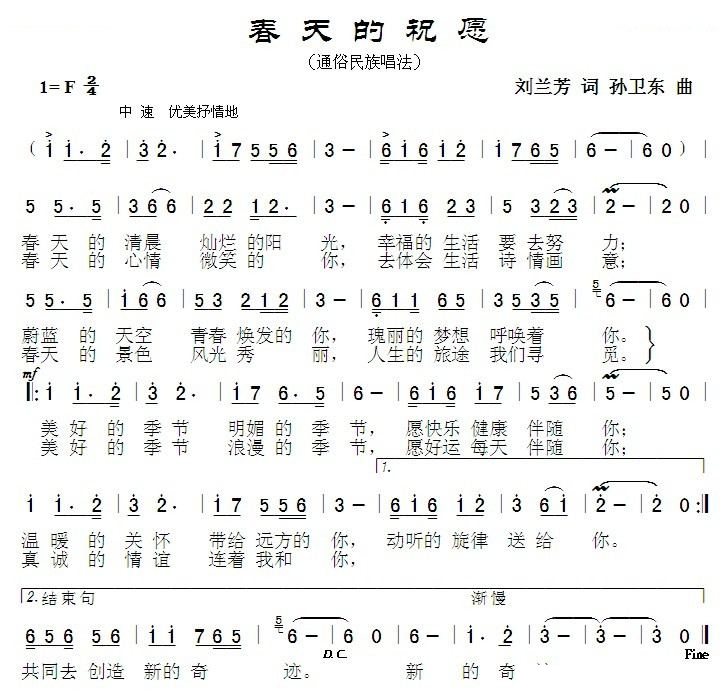 春天的祝愿
（通俗民族唱法）
1=F 2/4 刘兰芳 词 孙卫东 曲
中速 优美抒情地
( i i· 2 | 3 2· | i 7 5 5 6 | 3 - | 6 i 6 i 2 | i 7 6 5 | 6 - | 6 0 ) |
5 5· 5 | 3 6 6 | 2 2 1 2· | 3 - | 6 1 6 2 3 | 5 3 2 3 | 2 - | 2 0 |
春天 的 清晨 灿烂 的阳 光， 幸福的 生活 要 去努 力；
春天 的 心情 微笑 的 你， 去体会 生活 诗 情画 意；
5 5 5· 5 | i 6 6 | 5 3 2 1 2 | 3 - | 6 1 1 6 5 | 3 5 3 5 | 5 6 - | 6 0 |
蔚蓝 的 天空 青春 焕发的 你， 瑰丽的 梦想 呼唤着 你。
春天 的 景色 风光 秀 丽， 人生的 旅途 我们寻 觅。
mf
|: i i· 2 | 3 2· | i 7 6· 5 | 6 - | 6 i 6 i 7 | 5 3 6 | 5 - | 5 0 |
美 好 的 季 节 明媚 的 季 节， 愿快乐 健康 伴随 你；
美 好 的 季 节 浪漫 的 季 节， 愿好运 每天 伴随 你；
1.
i i· 2 | 3 2· | i 7 5 5 6 | 3 - | 6 i 6 i 2 | 3 6 i | 2 - | 2 0 :|
温 暖 的 关 怀 带给 远方的 你， 动听的 旋律 送 给 你。
真 诚 的 情 谊 连着 我和 你，
2. 结束句 渐慢
6 5 6 5 6 | i i 7 6 5 | 5 6 - | 6 0 | i - · 2 | 3 - | 3 - | 3 0 ||
D.C. Fine
共同去 创造 新的 奇 迹。 新 的 奇 ``